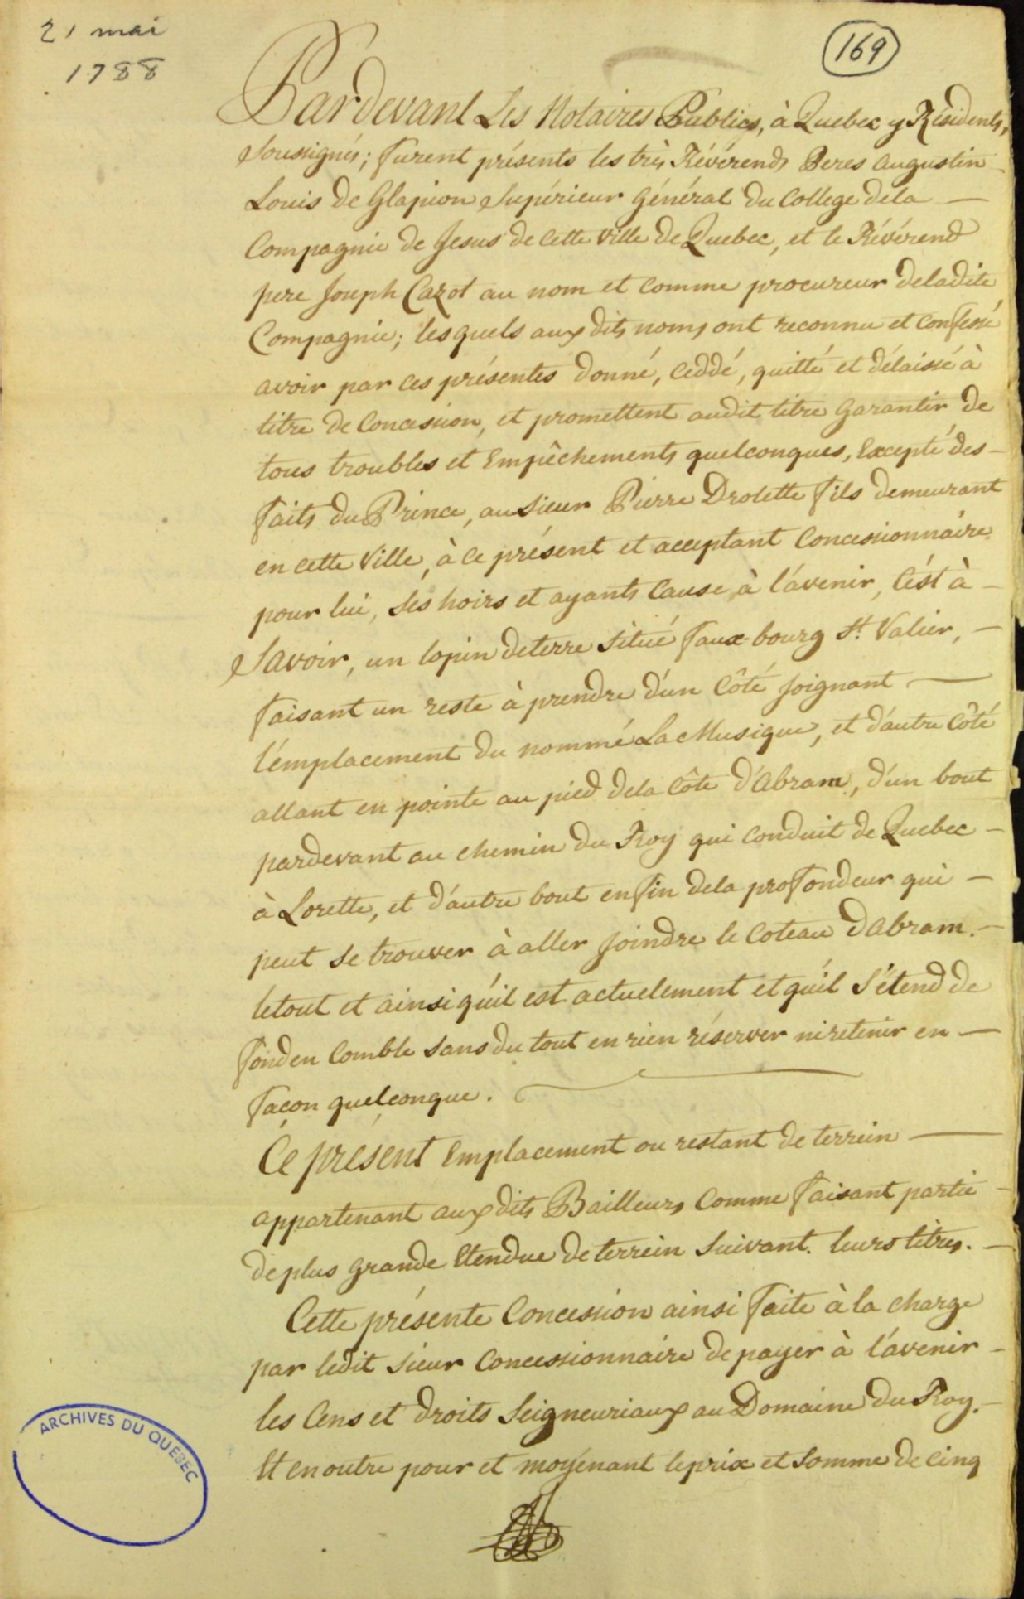 21 mai
1788
169
Pardevant Les Notaires Publics, à Quebec y Résidents,
Soussignés; furent présents les très Révérends Peres Augustin
Louis de Glapion Supérieur Général du College dela —
Compagnie de Jesus de cette ville de Quebec, et le Révérend
pere Joseph Cazot au nom et comme procureur deladite
Compagnie; lesquels aux dits noms ont reconnu et confessé
avoir par ces présentes donné, ceddé, quitté et délaissé à
titre de Concession, et promettent audit titre garantir de
tous troubles et Empêchements quelconques, Excepté des —
faits du Prince, au Sieur Pierre Drolette fils demeurant
en cette Ville, à ce présent et acceptant Concessionnaire
pour lui, ses hoirs et ayants cause à l'avenir, C'ést à —
Savoir, un lopin deterre situé faux bourg St. Valier, —
faisant un reste à prendre d'un Côté joignant —
l'émplacement du nommé La Musique, et d'autre Côté
allant en pointe au pied dela Côte d'Abram, d'un bout
pardevant au chemin du Roy qui conduit de Quebec —
à Lorette, et d'autre bout enfin dela profondeur qui —
peut se trouver à aller joindre le Coteau d'Abram. —
letout et ainsi qu'il est actuelement et qu'il S'étend de
fond en Comble sans du tout en rien réserver ni retenir en —
façon quelconque.
Ce présent Emplacement ou restant de terrein —
appartenant aux dits Bailleurs comme faisant partie
de plus grande Etendue de terrein Suivant. leurs titres. —
Cette présente Concession ainsi faite à la charge
par ledit Sieur Concessionnaire de payer à l'avenir —
les Cens et droits Seigneuriaux au Domaine du Roy. —
Et en outre pour et moyénant le prix et Somme de Cinq
ARCHIVES DU QUÉBEC